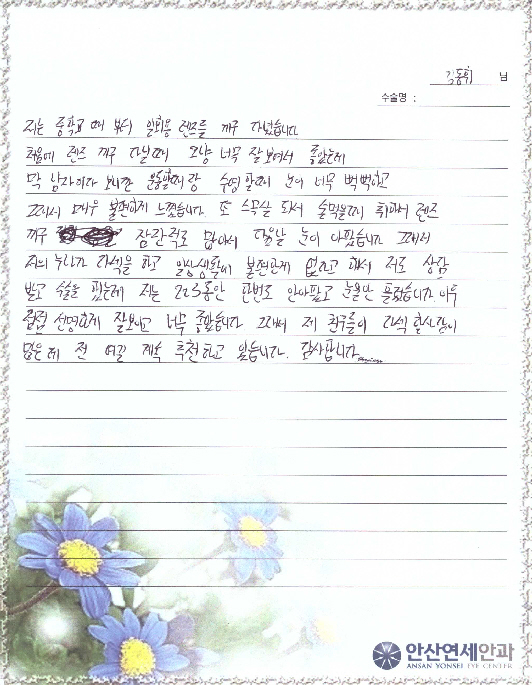 김동휘 님
수술명 :
저는 중학교 때 부터 일회용 렌즈를 끼구 다녔습니다
처음에 렌즈 끼구 다닐때 그냥 너무 잘보여서 좋았는데
막 남자이다 보니깐 운동할때랑 수영 할때 눈이 너무 뻑뻑하고
그래서 매우 불편하게 느꼈습니다. 또 스무살 되서 술먹을때 취해서 렌즈
끼구 잠잔적도 많아서 다음날 눈이 아팠습니다 그래서
저의 누나가 라섹을 하고 일상생활에 불편한게 없다고 해서 저도 상담
받고 수술을 했는데 저는 2~3동안 한번도 안아팠고 눈물만 흘렸습니다 이후
점점 선명하게 잘보이고 너무 좋았습니다 그래서 제 친구들이 라섹 할사람이
많은데 전 여길 계속 추천하고 있습니다. 감사합니다
안산연세안과
ANSAN YONSEI EYE CENTER